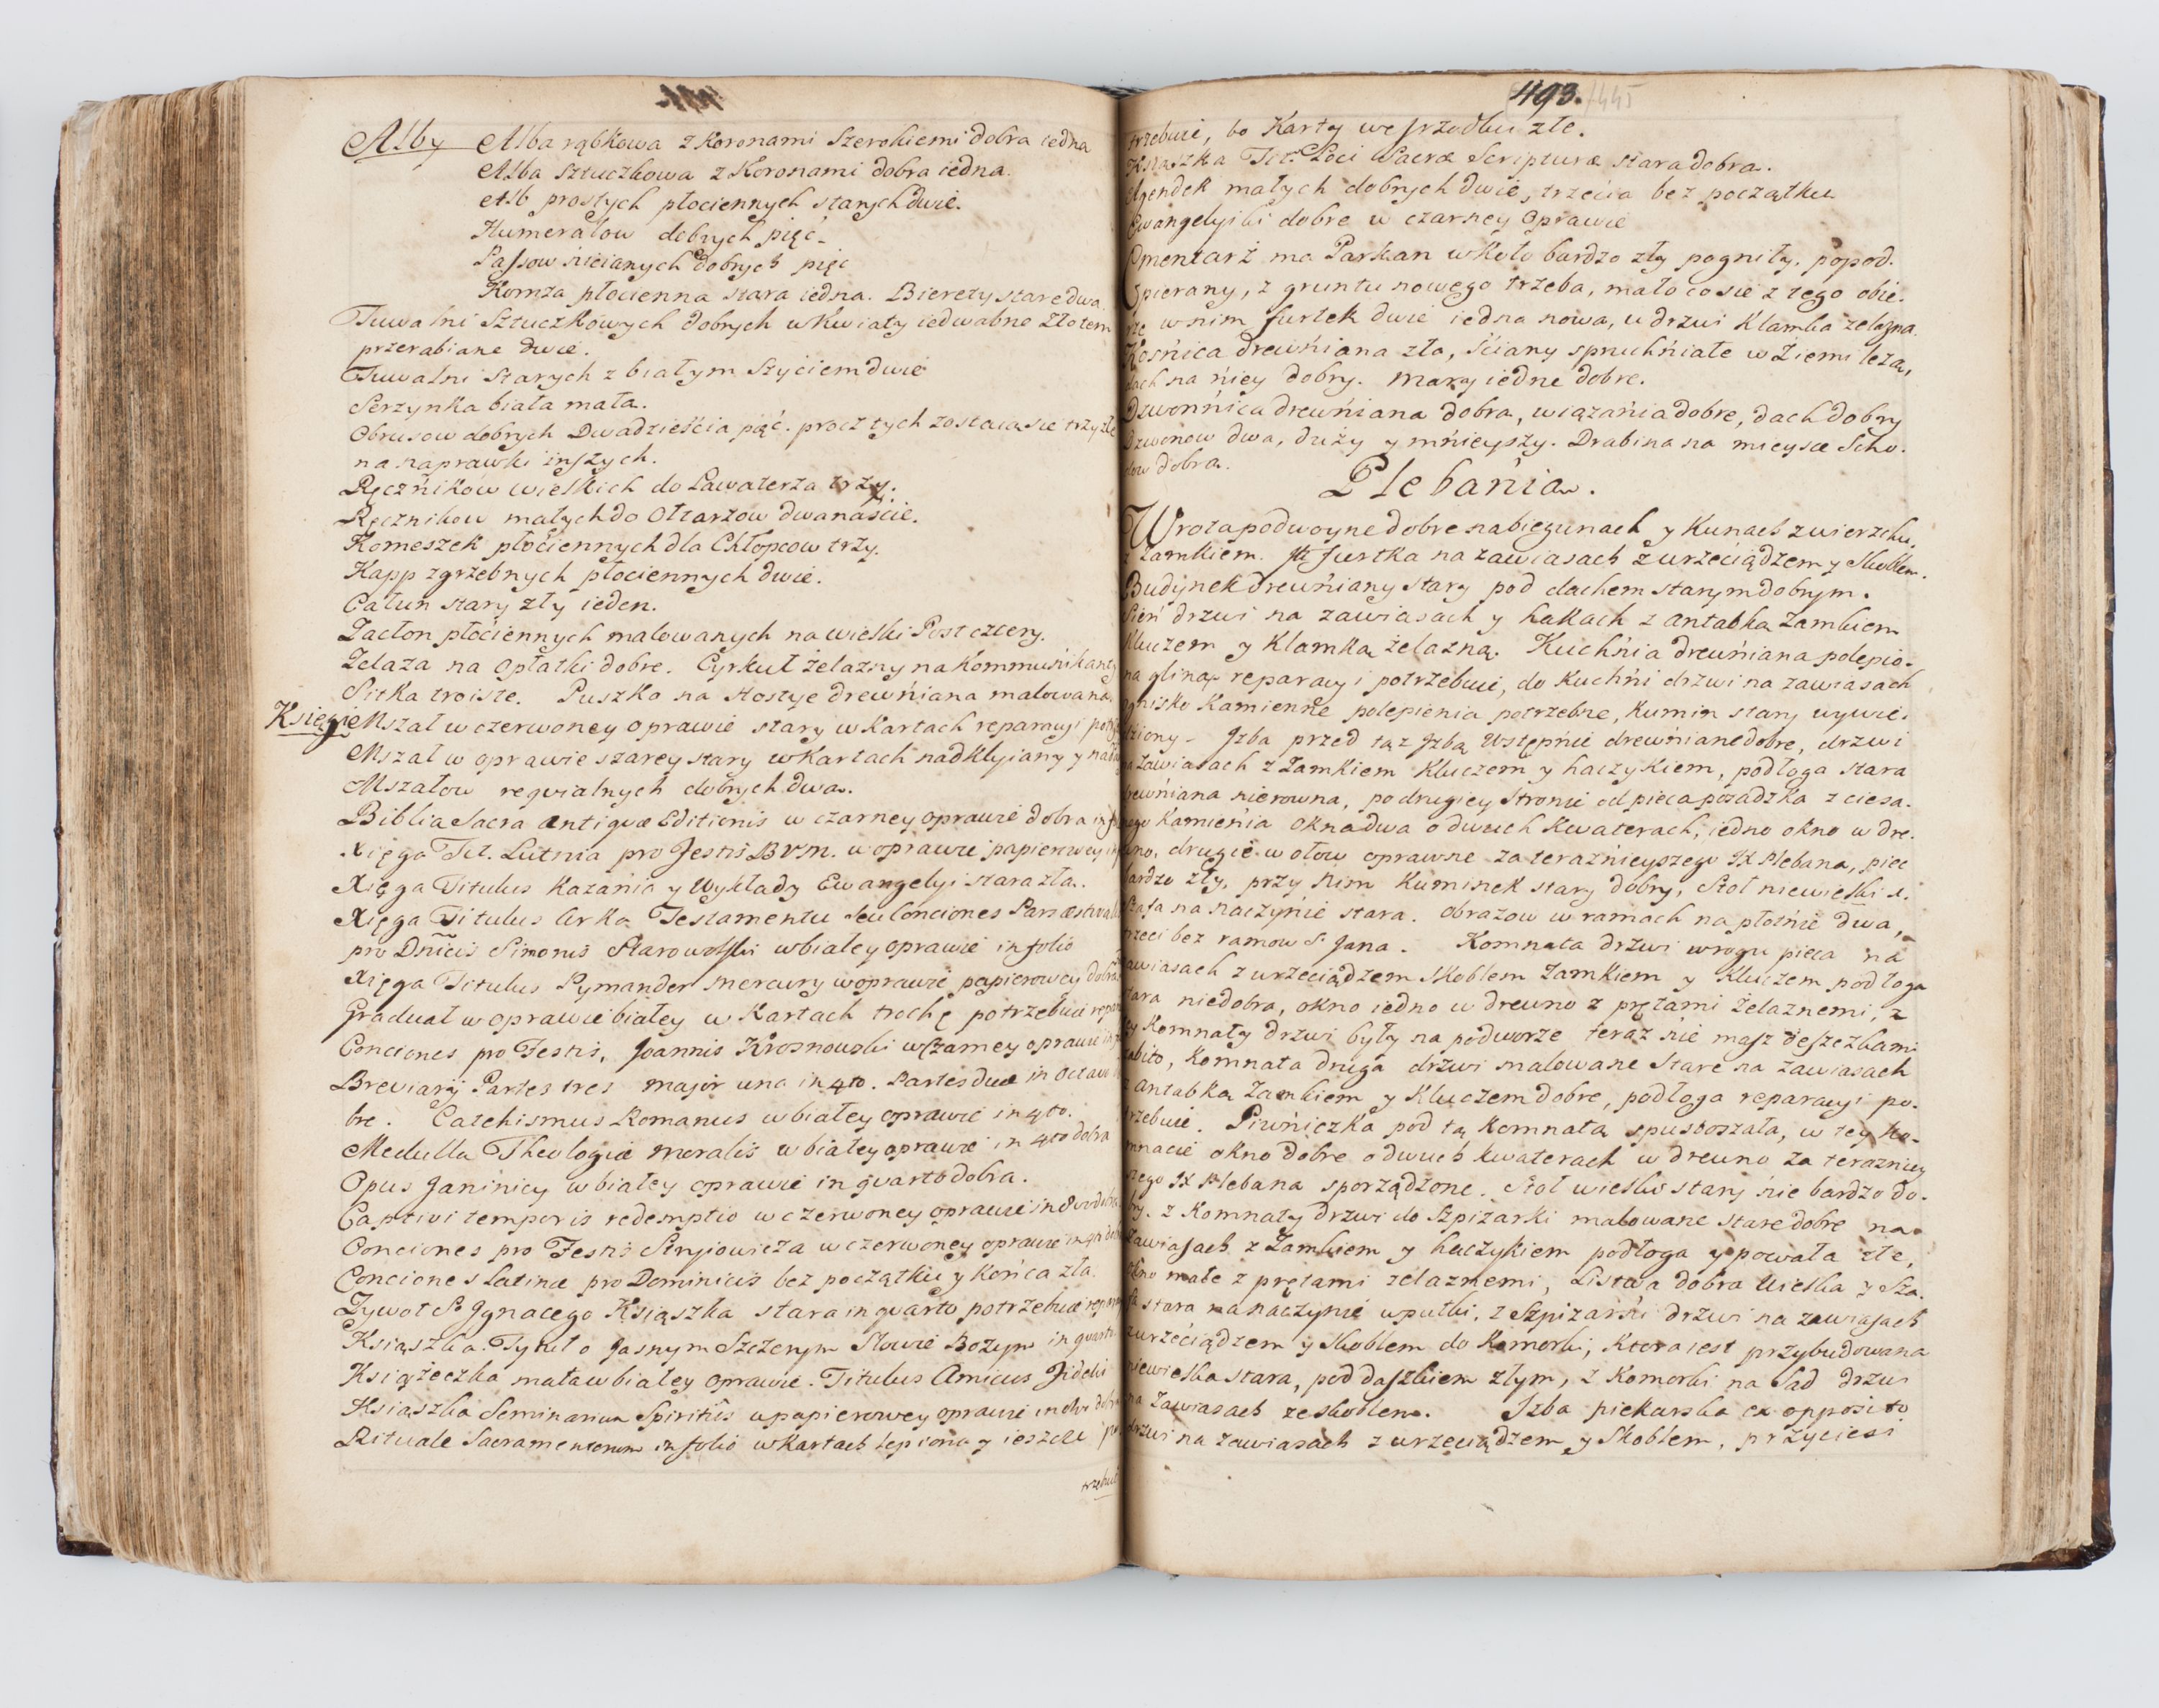 Alby Alba rąbkowa z Koronami Szerokiemi dobra iedna
Alba Sztuczkowa z Koronami dobra iedna.
Alb prostych płociennych starych dwie.
Humerałow dobrych pięć.
Passow nicianych dobrych pięć
Komża płocienna stara iedna. Birety stare dwa
Tuwalni Sztuczkowych dobrych w Kwiaty iedwabne złotem
przerabiane dwie.
Tuwalni starych z białym szyciem dwie
Serzynka biała mała.
Obrusow dobrych Dwadzieścia pięć. procz tych zostaią sie trzy złe
na naprawki inszych.
Ręcżnikow wielkich do Lawaterza trzy.
Ręcznikow małych do Ołtarzow dwanaście.
Komeszek płociennych dla Chłopcow trzy.
Kapp zgrzebnych płociennych dwie.
Całun stary zły ieden.
Zasłon płóciennych malowanych na wielki Post cztery.
Żelaza na opłatki dobre. Cyrkuł żelazny na Kommunikanty
Sitka troiste. Puszka na Hostye drewniana malowana.
Księgi Mszał w czerwoney oprawie stary w Kartach reparacyi
Mszał w oprawie szarey stary w Kartach nadkleiany y
Mszałow requialnych dobrych dwa.
Biblia Sacra antiquæ Editionis w czarney oprawie dobra
Xięga Tit. Lutnia pro Festis B.V.M. w oprawie papierowey
Xięga Titulus Kazania y Wykłady Ewangelyi stara zła.
Xięga Titulus Arka Testamentu seu Conciones Pars æstivalis
pro Dnicis Simonis Starowolski w białey oprawie in folio
Xięga Titulus Pymander Mercury w oprawie papierowey dobra
Graduał w oprawie białey w Kartach trochę potrzebuie
Conciones pro Festis, Joannis Krosnowski w czarney oprawie
Breviarij Partes tres major una in 4to. Partes duæ in Octavo
bre. Catechismus Romanus w białey oprawie in 4to.
Medulla Theologiæ Moralis w białey oprawie in 4to dobra
Opus Janiniey w białey oprawie in quarto dobra.
Captivi temporis redemptio w czerwoney oprawie in 8vo
Conciones pro Festis w czerwoney oprawie in 4to
Conciones Latinæ pro Dominicis bez początku y Końca zła.
Zywot S. Jgnacego Książka stara in quarto potrzebuie
Książka. Tytuł o Jasnym Szczerym Słowie Bożym in quarto
Książeczka mała w białey oprawie. Titulus Amicus Fidelis
Książka Seminarium Spiritûs w papierowey oprawie
Rituale Sacramentorum in folio w Kartach lepiona y ieszcze po
trzebuie
493. 445
trzebuie, bo Karty we srzodku złe.
Książka Tit. Loci Sacræ Scripturæ stara dobra.
Agendek małych dobrych dwie, trzecia bez początku
Ewangelyiki dobre w czarney Oprawie
Cmentarż ma Parkan wkoło bardzo zły pogniły, popod.
pierany, z gruntu nowego trzeba, mało co sie z tego obie.
rze w nim furtek dwie iedna nowa, u drzwi Klamka zelazna
Kośnica drewniana zła, ściany spruchniałe w Ziemi leżą,
dach na niey dobry. Mary iedne dobre.
Dzwonnica drewniana dobra, wiązania dobre, dach dobry
Dzwonow dwa, duży y mnieyszy. Drabina na mieysce Scho.
dow dobra.
Plebania.
Wrota podwoyne dobre na biegunach y Kunach z wierzchu,
z Zamkiem. Furtka na zawiasach z wrzeciądzem y Skoblem.
Budynek drewniany stary pod dachem starym dobrym.
Sień drzwi na zawiasach y hakach z antabką Zamkiem
Kluczem y Klamką żelazną. Kuchnia drewniana polepio.
na gliną reparacyi potrzebuie, do Kuchni drzwi na zawiasach
ognisko Kamienne polepienia potrzebne, Kumin stary wywie.
dziony. Jzba przed tąż Jzbą Wstępnie drewniane dobre, drzwi
na zawiasach z Zamkiem Kluczem y haczykiem, podłoga stara
drewniana nierowna, po drugiey stronie od pieca posadzka z ciesa.
nego Kamienia okna dwa o dwuch Kwaterach, iedno okno w dre.
wno, drugie w ołow oprawne za teraznieyszego JX Plebana, piec
bardzo zły, przy nim Kuminek stary dobry, Stoł niewielki
Szafa na naczynie stara. Obrazow w ramach na płotnie dwa,
trzeci bez ramow S. Jana. Komnata drzwi w rogu pieca na
zawiasach z wrzeciądzem Skoblem Zamkiem y Kluczem podłoga
stara niedobra, okno iedno w drewno z prętami żelaznemi, z
tey Komnaty drzwi były na podworze teraz nie masz deszczkami
zabito, Komnata druga drzwi malowane stare na zawiasach
z antabką Zamkiem y Kluczem dobre, podłoga reparacyi po.
trzebuie. Piwniczka pod tą Komnatą spustoszała, w tey Ko.
mnacie okno dobre o dwuch kwaterach w drewno za terazniey
szego JX Plebana sporządzone. Stoł wielki stary nie bardzo do.
bry. z Komnaty drzwi do Szpizarki malowane stare dobre na
zawiasach z Zamkiem y haczykiem podłoga y powała złe,
okno małe z prętami żelaznemi, Listwa dobra wielka y Sza.
fa stara na naczynie w pułki, z Szpizarni drzwi na zawiasach
z wrzeciądzem y Skoblem do Komorki, Ktora iest przybudowana
niewielka stara, pod daszkiem złym, z Komorki na Sad drzwi
na Zawiasach ze skoblem. Jzba piekarska ex opposito
drzwi na zawiasach z wrzeciądzem y Skoblem, przyciesi